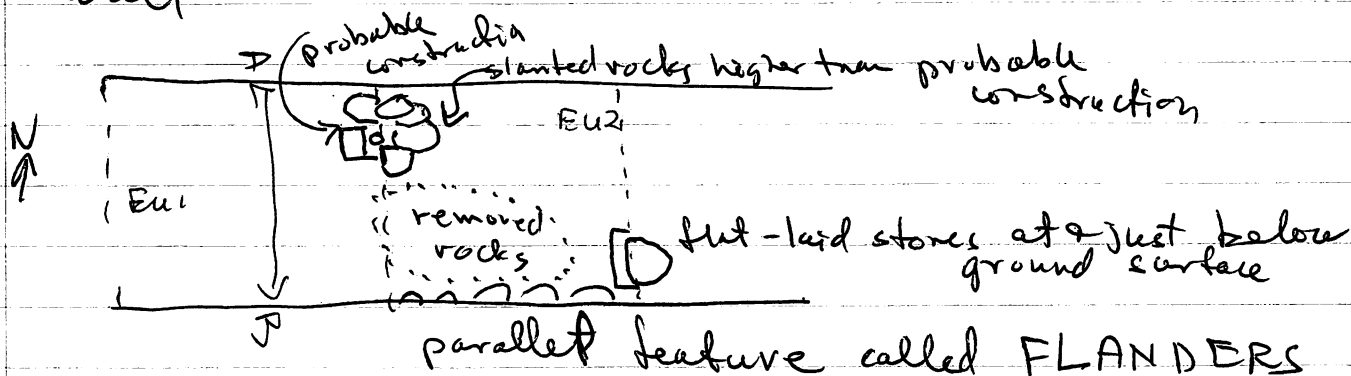 probable
construction
slanted rocks higher than probable
construction
N
EU2
EU1
removed
rocks
flat-laid stones at & just below
ground surface
parallel feature called FLANDERS